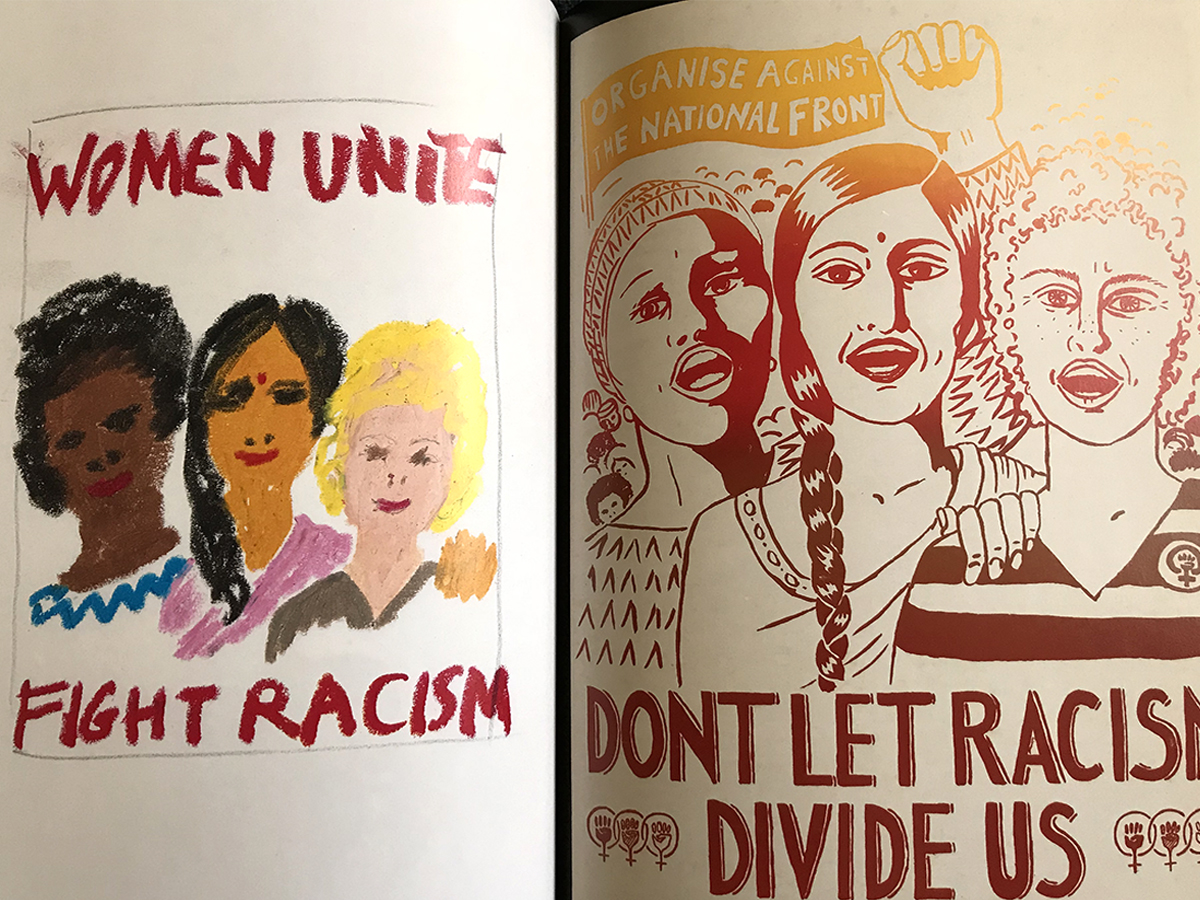 WOMEN UNITE
FIGHT RACISM
ORGANISE AGAINST
THE NATIONAL FRONT
DONT LET RACISM
DIVIDE US